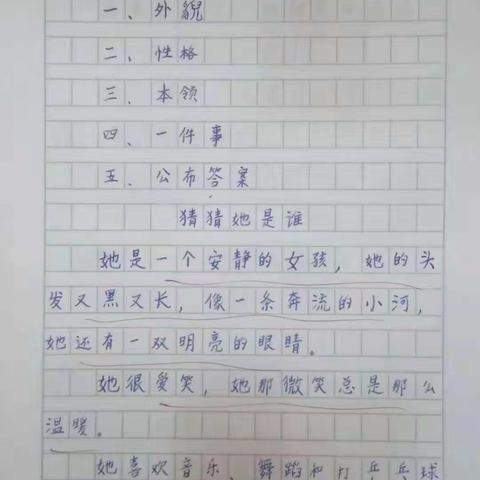 一、外貌
二、性格
三、本领
四、一件事
五、公布答案
猜猜她是谁
她是一个安静的女孩，她的头
发又黑又长，像一条奔流的小河，
她还有一双明亮的眼睛。
她很爱笑，她那微笑总是那么
温暖。
她喜欢音乐、舞蹈和打乒乓球